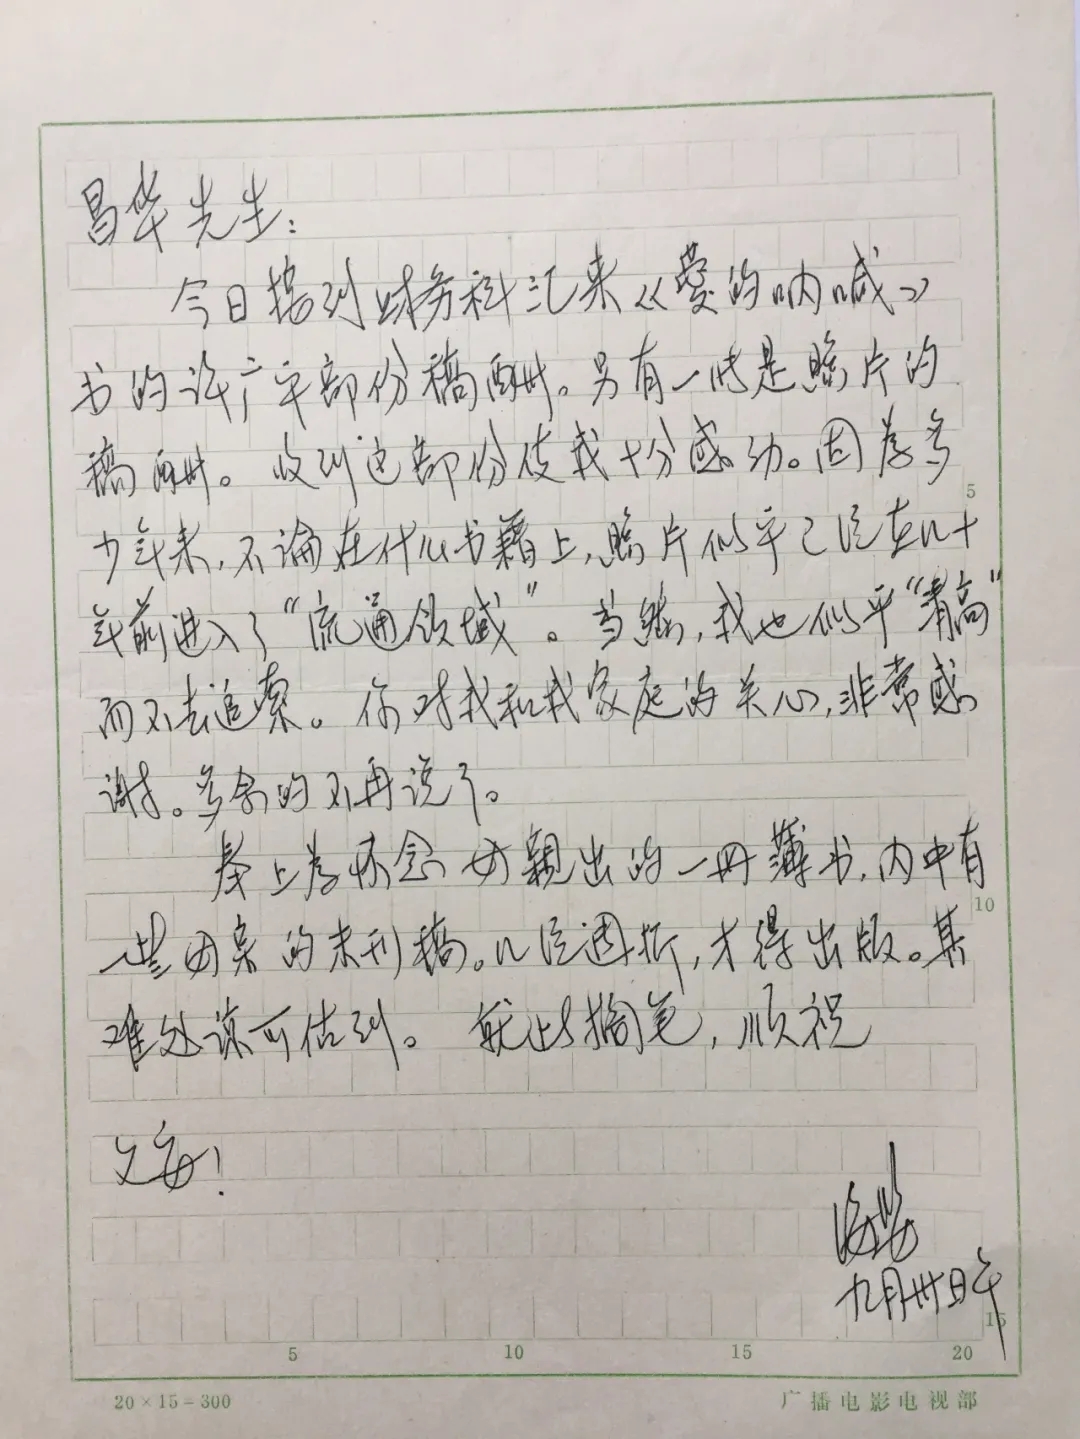 昌华先生：
今日接到财务科汇来《爱的呐喊》
书的许广平部份稿酬。另有一时是照片的
稿酬。收到这部份使我十分感动。因为多
少年来，不论在什么书籍上，照片似乎已经在几十
年前进入了“流通领域”。当然，我也似乎“清高”
而不去追索。你对我和我家庭的关心，非常感
谢。多余的不再说了。
奉上为怀念母亲出的一册薄书，内中有
一些母亲的未刊稿。几经周折，才得出版。其
难处谅可估到。就此搁笔，顺祝
文安！
海婴
九月卅日午
5
10
15
5 10 15 20
20×15＝300 广播电影电视部